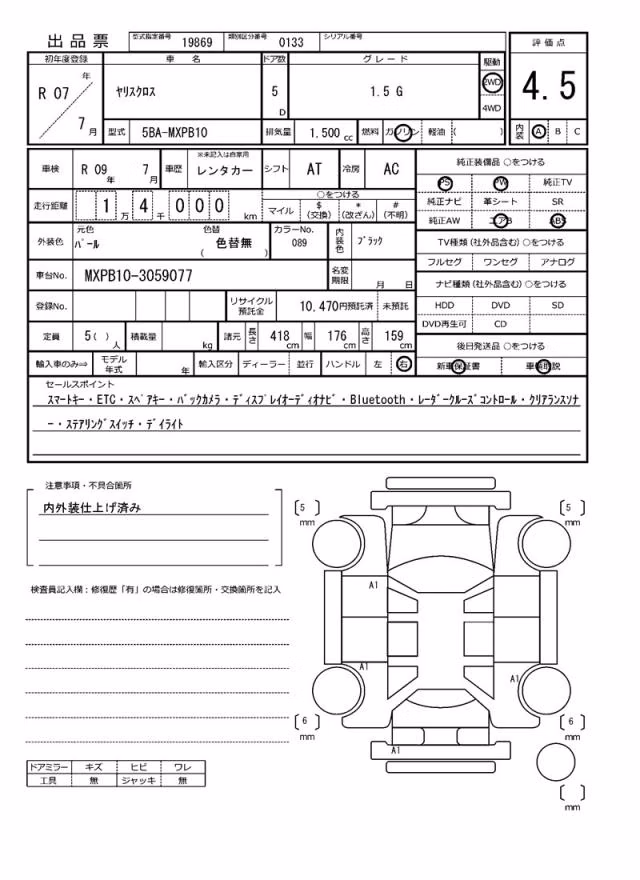 出品票 型式指定番号 19869 類別区分番号 0133 シリアル番号
初年度登録 車名 ドア数 グレード 駆動 評価点
R 07 年 7 月 ヤリスクロス 5 D 1.5 G 2WD 4WD 4.5
型式 5BA-MXPB10 排気量 1.500 cc 燃料 ガソリン 軽油 ( ) 内装 A B C
車検 R 09 年 7 月 車歴 ※未記入は自家用 レンタカー シフト AT 冷房 AC
走行距離 1 万 4 千 0 0 0 km ○をつける マイル $ (交換) * (改ざん) # (不明)
外装色 元色 パール 色替 ( 色替無 ) カラーNo. 089 内装色 ブラック
車台No. MXPB10-3059077 名変期限 月 日
登録No. リサイクル預託金 10.470円預託済 未預託
定員 5( ) 人 積載量 kg 諸元 長さ 418 cm 幅 176 cm 高さ 159 cm
輸入車のみ⇒ モデル年式 年 輸入区分 ディーラー 並行 ハンドル 左 右
純正装備品 ○をつける
PS PW 純正TV
純正ナビ 革シート SR
純正AW エアB ABS
TV種類 (社外品含む) ○をつける
フルセグ ワンセグ アナログ
ナビ種類 (社外品含む) ○をつける
HDD DVD SD
DVD再生可 CD
後日発送品 ○をつける
新車保証書 車輌取説
セールスポイント
スマートキー・ETC・スペアキー・バックカメラ・ディスプレイオーディオナビ・Bluetooth・レーダークルーズコントロール・クリアランスソナ
ー・ステアリングスイッチ・デイライト
注意事項・不具合箇所
内外装仕上げ済み
検査員記入欄：修復歴「有」の場合は修復箇所・交換箇所を記入
5 mm
5 mm
A1
A1
A1
6 mm
6 mm
A1
mm
ドアミラー キズ ヒビ ワレ
工具 無 ジャッキ 無